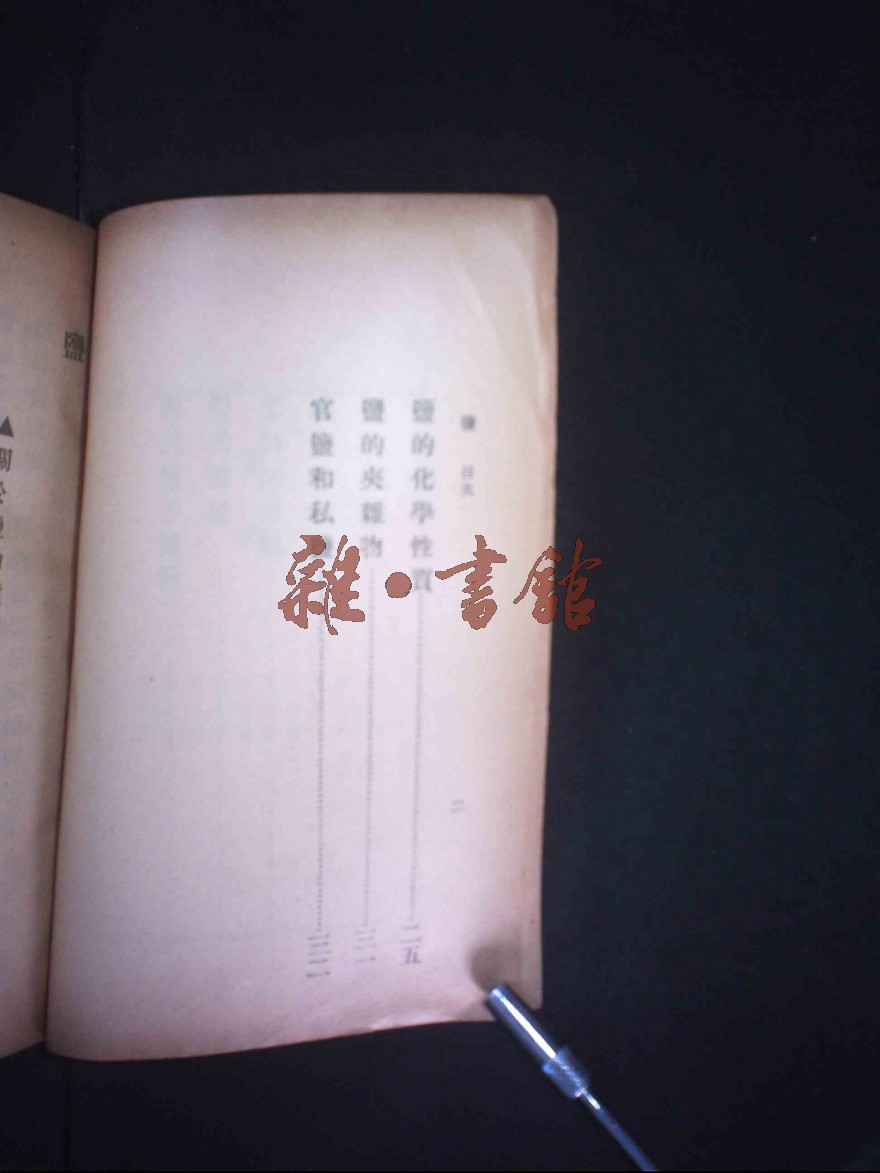 鹽 目次
二
鹽的化學性質
二五
鹽的夾雜物
官鹽和私鹽
鹽
▲關於
雜·書館